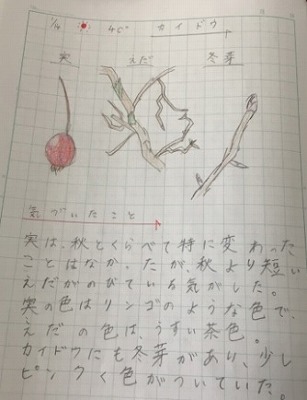 1/14 4℃ カイドウ
実 えだ 冬芽
気づいたこと
実は、秋とくらべて特に変わった
ことはなかったが、秋より短い
えだがのびている気がした。
実の色はリンゴのような色で、
えだの色は、うすい茶色。
カイドウにも冬芽があり、少し
ピンクく色がついていた。